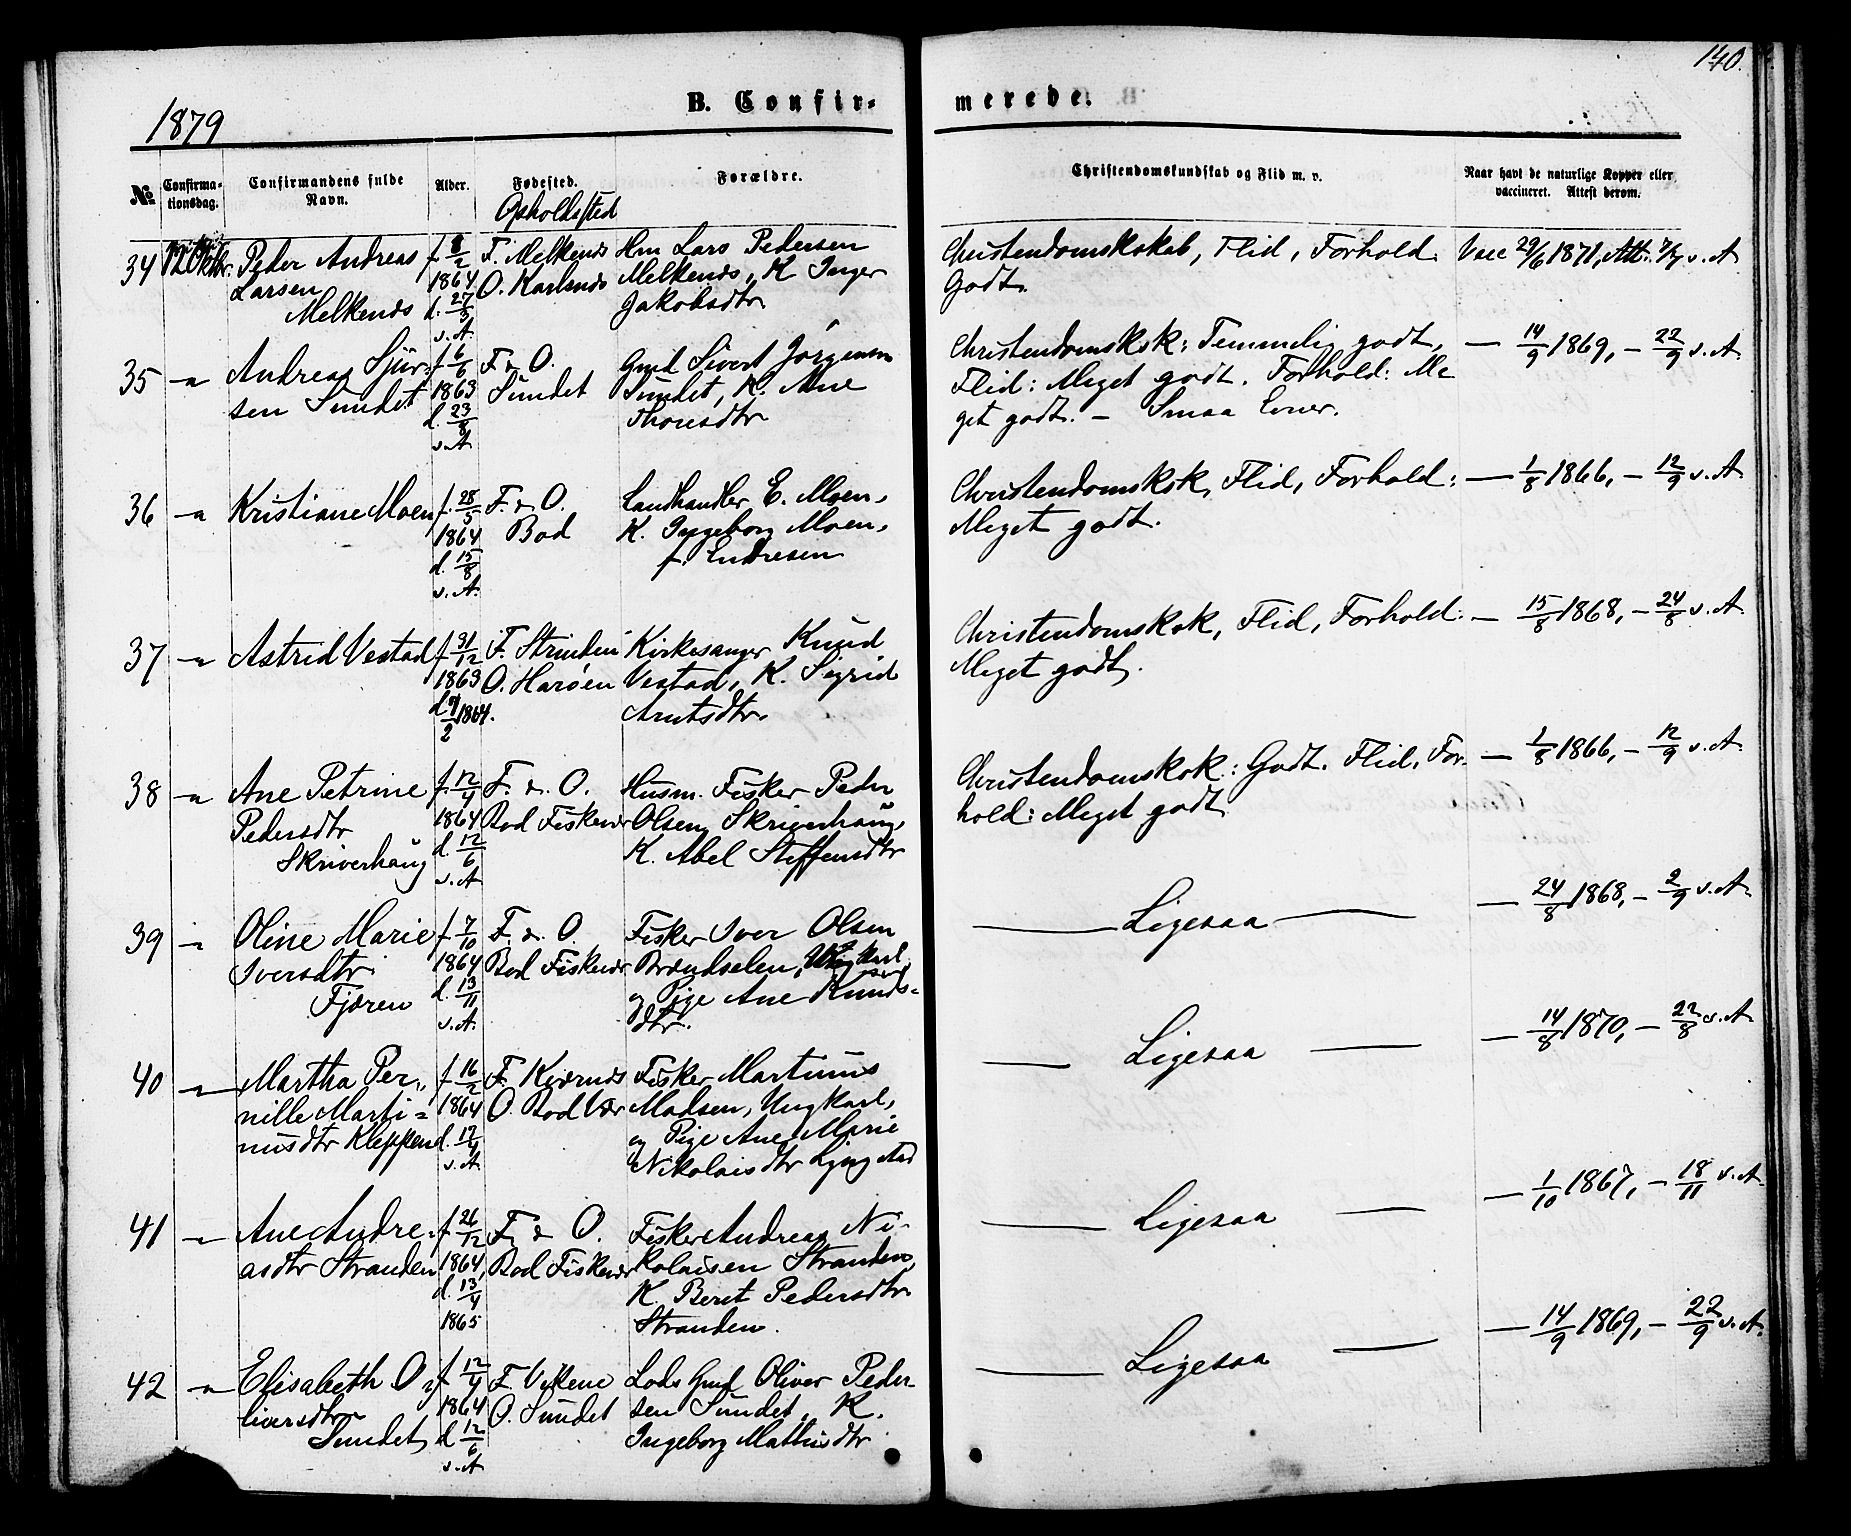 140.
1879
B. Confir-
merede.
№
Confirma-
tionsdag.
Confirmandens fulde
Navn.
Alder.
Fødested.
Opholdssted
Forældre.
Christendomskundskab og Flid m. v.
Naar havt de naturlige Kopper eller
vaccineret. Attest derom.
34 12 Oktbr. Peder Andreas
Larsen
Melkenes
f. 8/2
1864
d. 27/3
s. A.
F. Melkenes
O. Karlsnes
Hm Lars Pedersen
Melkenes, K. Inger
Jakobsdtr
Christendomskskab, Flid, Forhold:
Godt.
Vacc 29/6 1871, Att. 7/7 s. A
35 — " Andreas Sjur-
sen Sundet
f. 6/6
1863
d. 23/8
s. A
F & O.
Sundet
Gmd Sivert Jørgensen
Sundet, K. Ane
Thoresdtr
Christendomsksk: Temmelig godt,
Flid: Meget godt. Forhold: Me
get godt. — Smaa Evner.
— 14/9 1869, — 22/9 s. A
36 — " Kristiane Moen
f. 28/5
1864
d. 15/8
s. A.
F. & O.
Bod
Landhandler E. Moen,
K. Ingeborg Moen,
f. Endresen
Christendomsksk, Flid, Forhold:
Meget godt.
— 1/8 1866, — 12/9 s. A
37 — " Astrid Vestad
f. 31/12
1863
d. 9/2 1864.
F. Strinden
O. Harøen
Kirkesanger Knud
Vestad, K. Sigrid
Arntsdtr
Christendomsksk, Flid, Forhold:
Meget godt.
— 15/8 1868, — 24/8 s. A.
38 — " Ane Petrine
Pedersdtr
Skriverhaug
f. 12/4
1864
d. 12/6
s. A
F. & O.
Bod Fiskevær
Husm. Fisker Peder
Olsen Skriverhaug,
K. Abel Steffensdtr
Christendomsksk: Godt. Flid, For-
hold: Meget godt
— 1/8 1866, — 12/9 s. A.
39 — " Oline Marie
Iversdtr
Fjæren
f. 7/10
1864
d. 13/11
s. A.
F. & O.
Bod Fiskevær
Fisker Iver Olsen
Brændselen, Ungkarl
og Pige Ane Knuds-
dtr.
— Ligesaa —
— 24/8 1868, — 2/9 s. A.
40 — " Martha Per-
nille Marti-
nusdtr Kleppen
f. 16/2
1864
d. 17/4
s. A
F. Kværnes
O. Bod Vær
Fisker Martinus
Madsen, Ungkarl,
og Pige Ane Marie
Nikolaisdtr Lyngstad
— Ligesaa —
— 14/8 1870, — 22/8 s. A
41 — " Ane Andre-
asdtr Stranden
f. 26/12
1864,
d. 13/4
1865
F. & O.
Bod Fiskevær
Fisker Andreas Ni-
kolaisen Stranden,
K. Beret Pedersdtr
Stranden.
— Ligesaa —
— 1/10 1867, — 18/11 s. A.
42 — " Elisabeth O-
liversdtr
Sundet
f. 12/4
1864
d 12/6
s. A
F. Vikene
O. Sundet
Lods Gmd Oliver Peder
sen Sundet, K.
Ingeborg Mathisdtr
— Ligesaa —
— 14/9 1869, — 22/9 s. A.